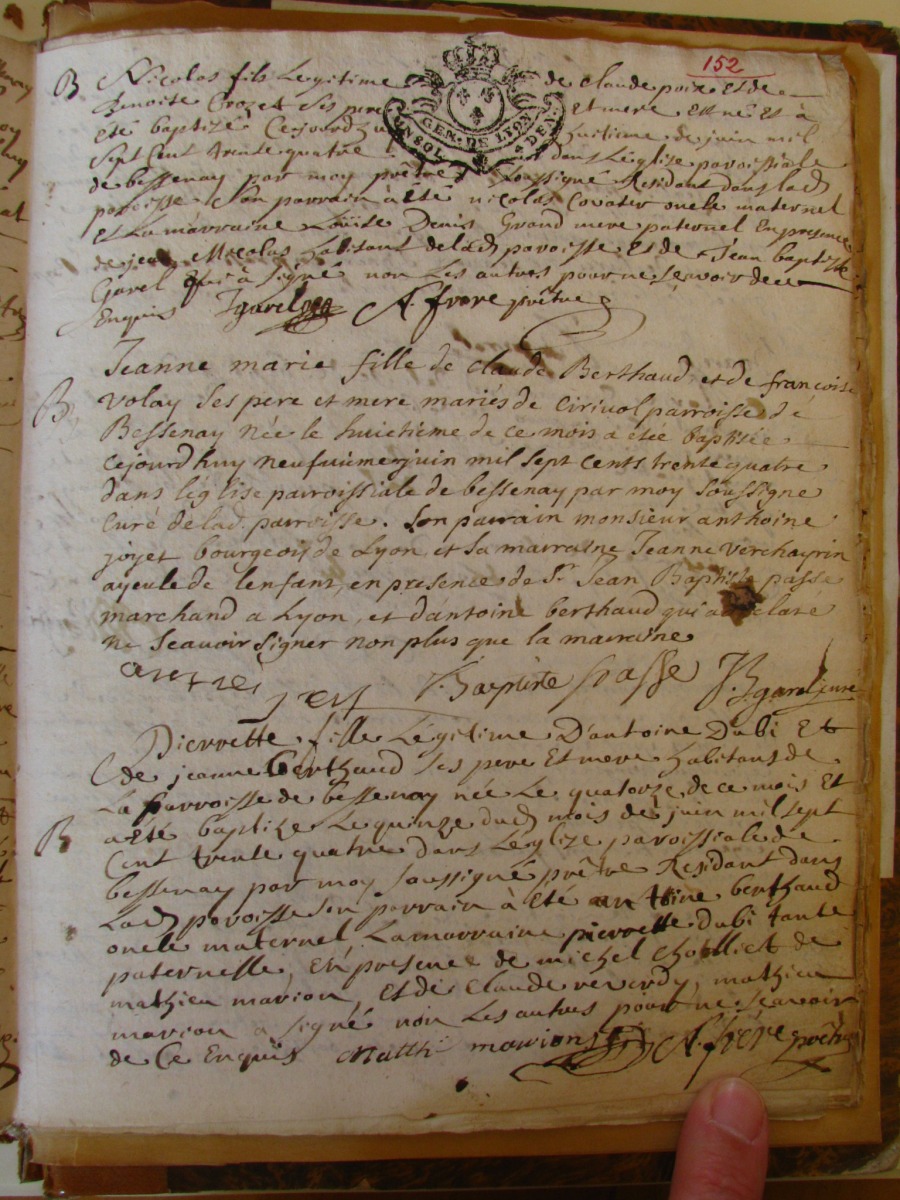 152
B Nicolas fils Legitime de claude poize et de
Benoite Crozet ses pere et mere est né et à
eté baptizé Cejourdhuy huitieme de juin mil
Sept Cent trente quatre dans Leglise paroissiale
GEN. DE LYON
UN SOL 4 DEN
de bessenay par moy prêtre soussigné Residant dans lad
paroisse Son parrain à été nicolas Covater oncle maternel
et La marraine Loüise Denis Grand mere paternel En presence
de jean Nicolas habitant delad paroisse et de Jean baptiste
Garel qui à Signé non Les autres pour ne Scavoir de ce
Enquis JGarel A. frere prêtre
Jeanne marie fille de claude Berthaud et de francoise
B Volay Ses pere et mere mariés de Cirivol parroisse de
Bessenay née le huictieme de ce mois a etée baptisée
cejourdhuy neufuieme juin mil sept cents trente quatre
dans léglise parroissiale de bessenay par moy Soussigne
curé de lad. parroisse. Son parrain monsieur anthoine
joyet bourgeois de Lyon et sa marraine Jeanne verchayrin
ayeule de lenfant, en presence de Sr Jean Baptiste passe
marchand a Lyon, et dantoine berthaud qui a declaré
ne Scavoir Signer non plus que la marraine
J. Baptiste passe J.B garel curé
Pierrette fille Légitime D'antoine Dubi Et
de jeanne berthaud Ses pere Et mere habitans de
La parroisse de bessenay née Le quatorze de ce mois Et
B a été baptize Le quinze dud mois de juin mil sept
Cent trente quatre dans Leglize paroissiale de
bessenay par moy Soussigné prêtre Residant dans
Lad paroisse Son parrain à été anttoine berthaud
oncle maternel La marraine pierrette Dubi tante
paternelle, En presence de michel Chollict de
mathieu marion, et de Claude reverdy, mathieu
marion a signé non Les autres pour ne Scavoir
de Ce Enquis Matth marion A. frére prêtre